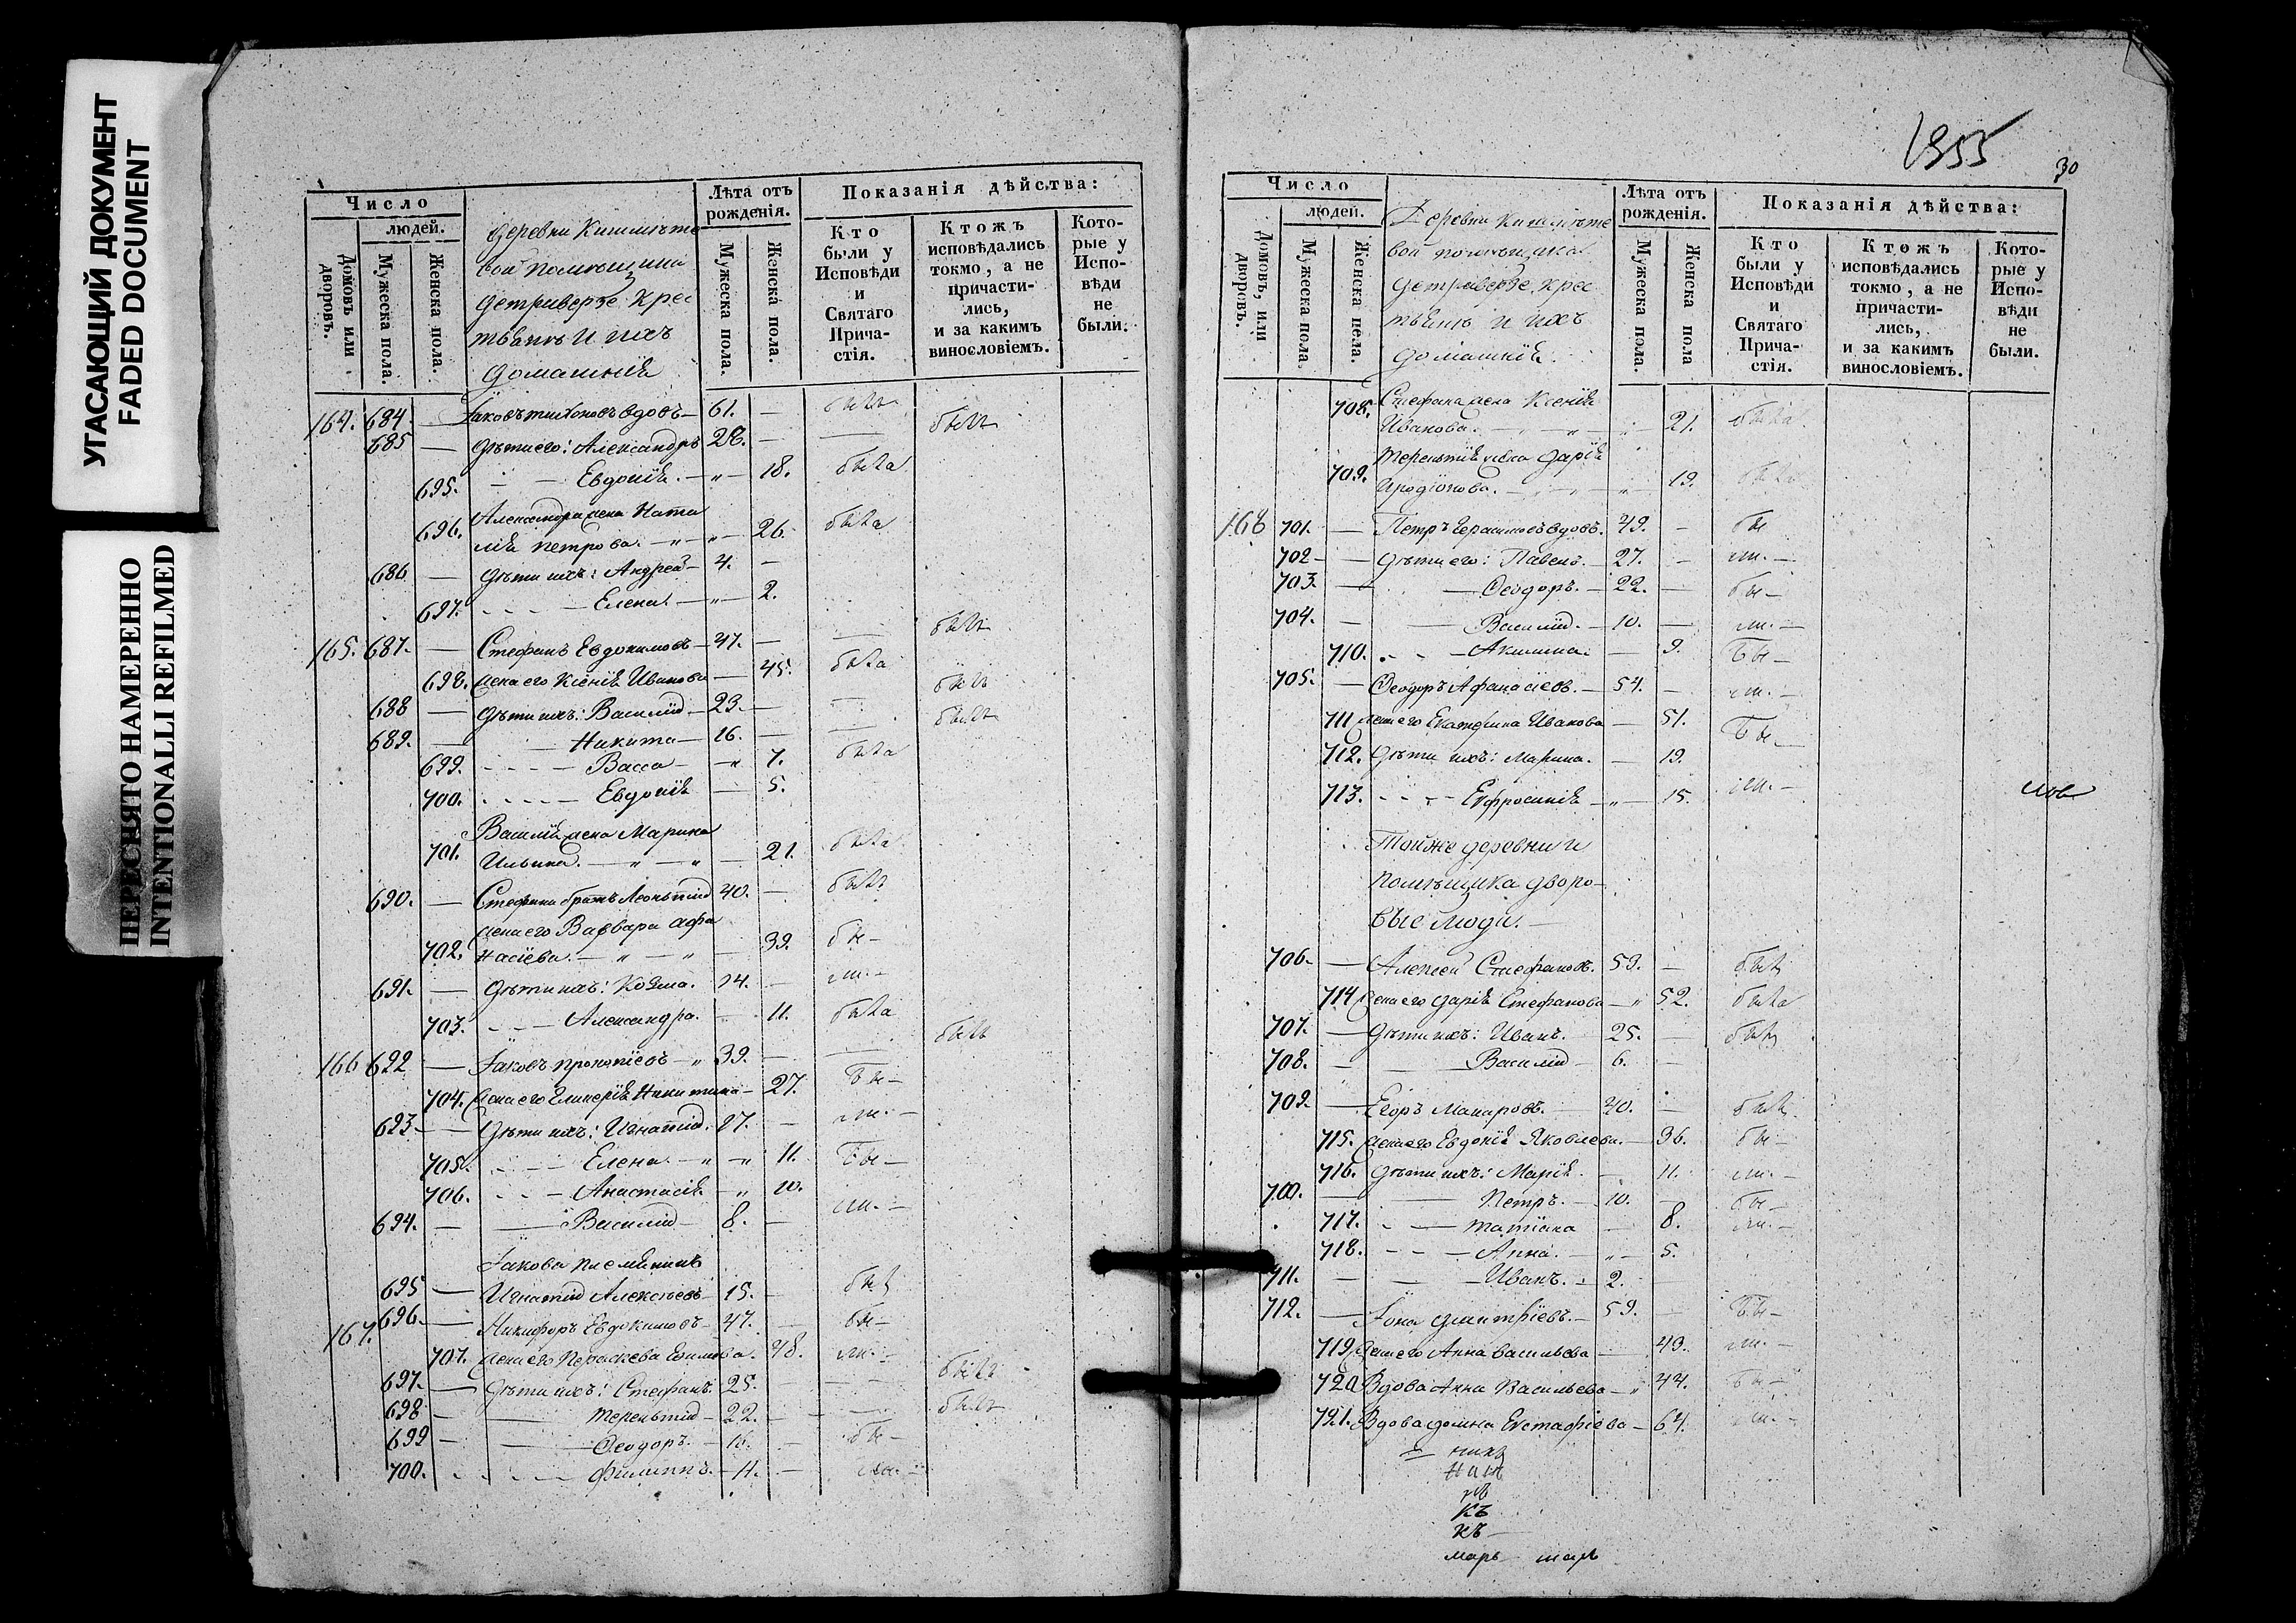 УГАСАЮЩИЙ ДОКУМЕНТ
FADED DOCUMENT
ПЕРЕСНЯТО НАМЕРЕННО
INTENTIONALLI REFILMED
Число
людей.
Домовъ или дворовъ.
Мужеска пола.
Женска пола.
деревни
вой помѣщика
Детриверзе крес
тьянъ и ихъ
домашнія
Лѣта отъ рожденія.
Мужеска пола.
Женска пола.
Показанія дѣйства:
Кто были у Исповѣди и Святаго Прича-стія.
Ктожъ исповѣдались токмо, а не причасти-лись, и за какимъ винословіемъ.
Кото-рые у Испо-вѣди не были.
164. 684. — Іаковъ Тихоновъ вдовъ — 61. — былъ
685 — дѣти его: Александръ 28. — — былъ
695. — — Евдокія. — „ — 18. была
Александра жена Ната
696. лія Петрова. — „ — „ — 26. была
686 — дѣти ихъ: Андрей — 4. —
697. - - - — Елена. — „ — 2.
165. 687. — Стефанъ Евдокимовъ — 47. — — былъ
698. жена его Ксенія Иванова — 45. была
688 — дѣти ихъ: Василій — 23. — — былъ
689. — — Никита — 16. — — былъ
699. - - - — Васса — „ 7. была
700. - - - — Евдокія — 5.
Василія жена Марина
701. Ильина. — „ — „ — 21. была
690. — Стефана братъ Леонтій 40. — былъ
жена его Варвара Афа
702. насіева. — „ — „ — 39. бы —
691. — дѣти ихъ: Козма. 14. — ли. —
703. - - — Александра. — 11. была
166 692 — Іаковъ Прокопіевъ — „ 39. — — былъ
704. жена его Гликерія Никитина — 27. бы —
693. — дѣти ихъ: Игнатій. 17. — ли. —
705. - - — Елена. — „ — 11. бы —
706. - - — Анастасія — „ 10. ли. —
694. — — Василій — 8. —
Іакова племянникъ
695 — Игнатій Алексѣевъ 15. — былъ
167. 696. — Никифоръ Евдокимовъ — 47. — бы —
707. жена его Параскева Ефимова. 48. ли. —
697. — дѣти ихъ: Стефанъ. 25. — — былъ
698 — — Терентій — 22. — — былъ
699 — — Ѳеодоръ. — 16. — бы —
700. - - — Филиппъ. — 11. — ли. —
1955
30
Число
людей.
Домовъ, или дворовъ.
Мужеска пола.
Женска пола.
Деревни
вой помѣщика
Детриверзе крес
тьянъ и ихъ
домашнія
Лѣта отъ рожденія.
Мужеска пола.
Женска пола
Показанія дѣйства:
Кто были у Исповѣди и Святаго Прича-стія.
Ктожъ исповѣдались токмо, а не причасти-лись, и за какимъ винословіемъ.
Кото-рые у Испо-вѣди не были.
708. Стефана жена Ксенія
Иванова. — „ — „ — 21. была
Терентія жена Дарія
709. Иродіонова. — „ — 19. была
168 701. — Петръ Герасимовъ вдовъ. 49. — бы
702 — — дѣти его: Павелъ. — 27. — ли. —
703. — — Ѳеодоръ. — 22. — бы —
704. — — Василій. — 10. — ли. —
710. - - — Акилина — 9. бы —
705. — Ѳеодоръ Афанасіевъ. — 54. — ли. —
711 жена его Екатерина Иванова — 51. бы —
712. дѣти ихъ: Марина. — 19.
713. - - - Евфросинія — „ — 15. ли. —
Тойже деревни и
помѣщика дворо-
вые люди. —
706. — Алексей Стефановъ. 53. — былъ
714 жена его Дарія Стефанова — „ 52. была
707. — дѣти ихъ: Иванъ. 25. — былъ
708. — — Василій — 6. —
709. — Егоръ Макаровъ. — 40. — былъ
715. жена его Евдокія Яковлева. — 36. бы —
716. дѣти ихъ: Марія. — 11. ли. —
700. — — Петръ. — 10. — бы —
717. - — Татіана — 8. ли. —
718. - - — Анна. — „ — 5.
711. — — Иванъ. — 2. —
712. — Іона Димитріевъ. — 59. — бы —
719 жена его Анна Васильева — 43. ли. —
720 Вдова Анна Васильева — „ 44. бы —
721. Вдова Домна Евстафіева — 64. ли. —
къ
къ —
марь